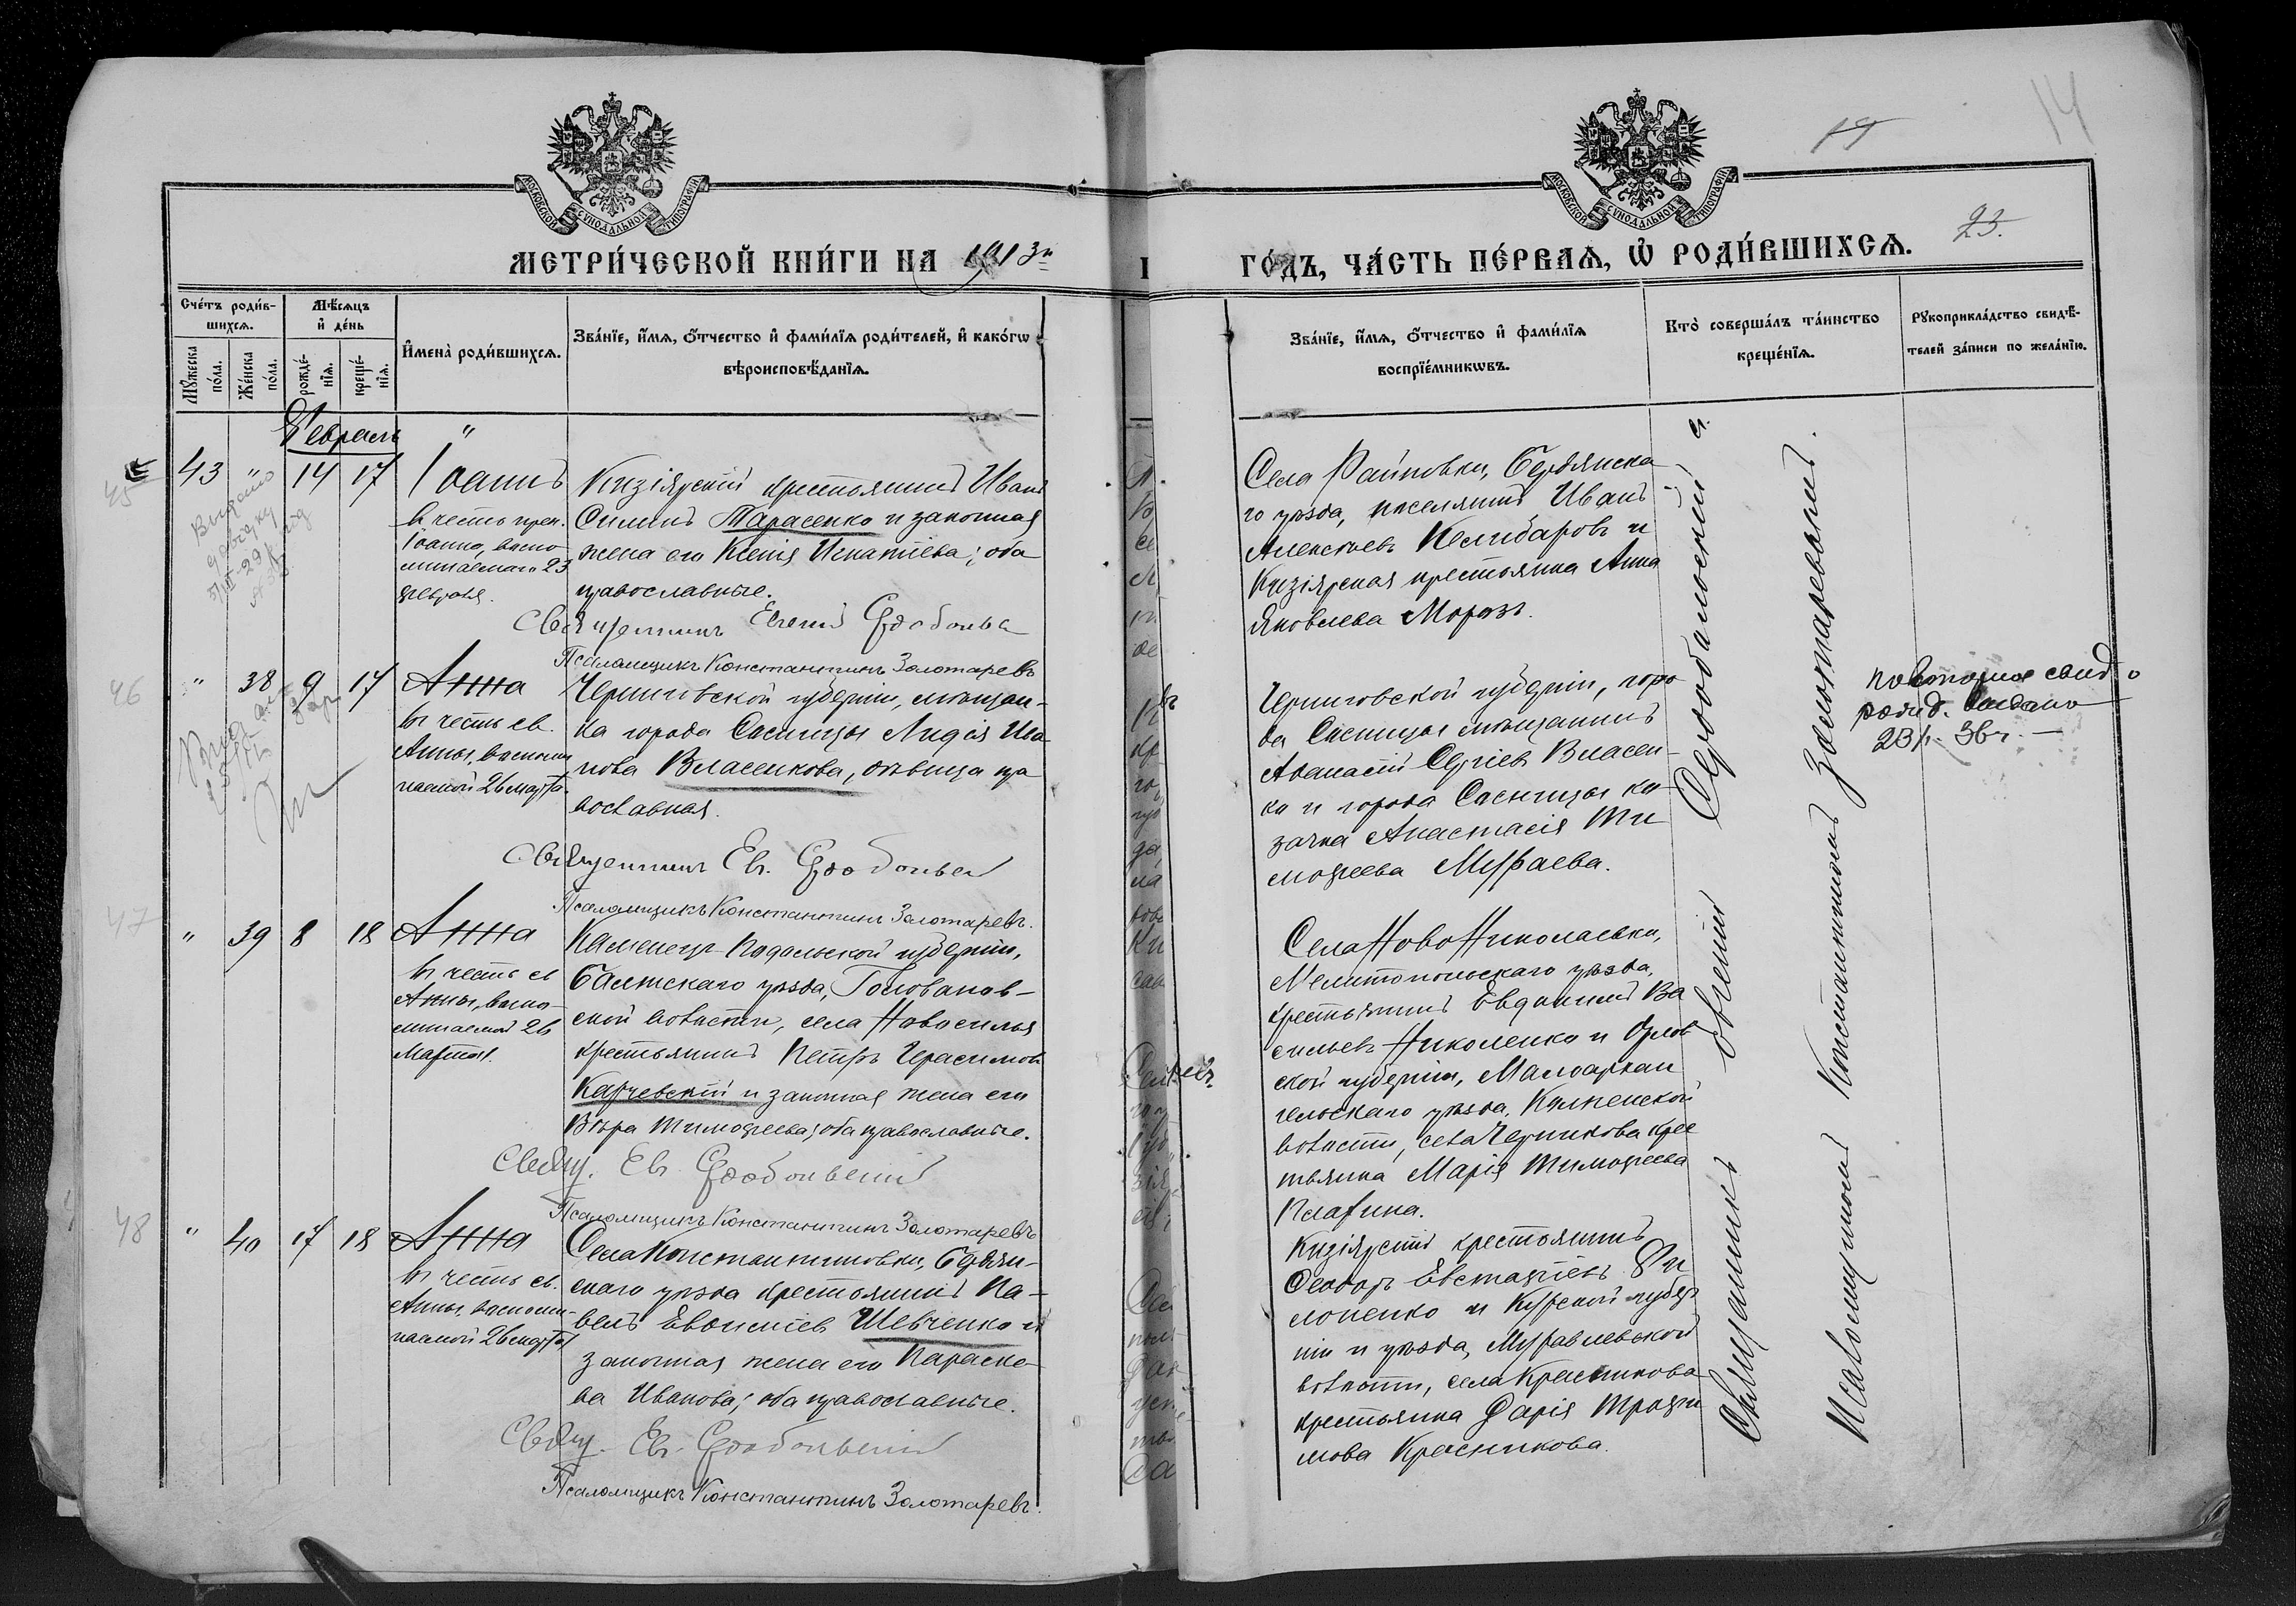 14
19
23.
МОСКОВСКОЙ СѴНОДАЛЬНОЙ ТИПОГРАФІИ
МОСКОВСКОЙ СѴНОДАЛЬНОЙ ТИПОГРАФІИ
МЕТРИ́ЧЕСКОЙ КНИ́ГИ НА 1913 й
ГО́ДЪ, ЧА́СТЬ ПЕ́РВАѦ, Ѡ҆ РОДИ́ВШИХСѦ.
Сче́тъ роди́в-
шихсѧ.
Мꙋ́жеска по́ла.
Же́нска по́ла.
Мѣ́сѧцъ
и҆ де́нь
рожде́-
нїѧ.
креще́-
нїѧ.
И҆мена̀ роди́вшихсѧ.
Зва́нїе, и҆́мѧ, ѻ҆́тчество и҆ фами́лїѧ роди́телей, и҆ како́гѡ
вѣроисповѣ́данїѧ.
Зва́нїе, и҆́мѧ, ѻ҆́тчество и҆ фами́лїѧ
воспрїе́мникѡвъ.
Кто̀ соверша́лъ та́инство
креще́нїѧ.
Рꙋкоприкла́дство свидѣ́-
телей за́писи по жела́нїю.
Февраль "
45
43 " 14 17 Іоаннъ
въ честь преп.
Іоанна, воспо-
минаемаго 23
февраля.
Кизіярскій крестьянинъ Иванъ
Силинъ Тарасенко и законная
жена его Ксенія Игнатіева; оба
православные.
Священникъ Евгеній
Псаломщикъ Константинъ Золотаревъ
Села Райновки, Бердянска
го уѣзда, поселянинъ Иванъ
Алексѣевъ Келибаровъ и
Кизіярская крестьянка Анна
Яковлева Морозъ.
46
" 38 9 17 Анна
въ честь св.
Анны, воспоми
наемой 26 марта.
Черниговской губерніи, мѣщан-
ка города Сосницы Лидія Ива
нова Власенкова, дѣвица пра
вославная.
Священникъ Ев.
Псаломщикъ Константинъ Золотаревъ.
Черниговской губерніи, горо
да Сосницы мѣщанинъ
Аѳанасій Сергіевъ Власен-
ко и города Сосницы ка
зачка Анастасія Ти
моѳеева Мураева.
повторное свид-о
рожд. выдано
23/ 36 г. —
47
" 39 8 18 Анна
въ честь св
Анны, воспо-
минаемой 26
Марта.
Каменецъ-Подольской губерніи,
Балтскаго уѣзда, Голованов-
ской волости, села Новоселья
крестьянинъ Петръ Герасимов
Карчевскій и законная жена его
Вѣра Тимоѳеева; оба православные.
Свящ. Ев.
Псаломщикъ Константинъ Золотаревъ
Села НовоНиколаевки,
Мелитопольскаго уѣзда,
крестьянинъ Евдокимъ Ва
сильевъ Николенко и Орлов
ской губерніи, Малоархан
гельскаго уѣзда, Колпенской
волости, села Черникова крес
тьянка Марія Тимоѳеева
48
" 40 17 18 Анна
въ честь св.
Анны, воспоми-
наемой 26 марта
Села Константиновки, Бердян-
скаго уѣзда крестьянинъ Па-
велъ Евсигніев Шевченко и
законная жена его Параске-
ва Иванова; оба православные.
Свящ. Ев.
Псаломщикъ Константинъ Золотаревъ.
Кизіярскій крестьянинъ
Ѳеодоръ Евстафіевъ Фи
лоненко и Курской губер
ніи и уѣзда, Муравлевской
волости, села Красникова
крестьянка Дарія Трофи
мова Красникова.
Священникъ Евгеній
Псаломщикъ Константинъ Золотаревъ.